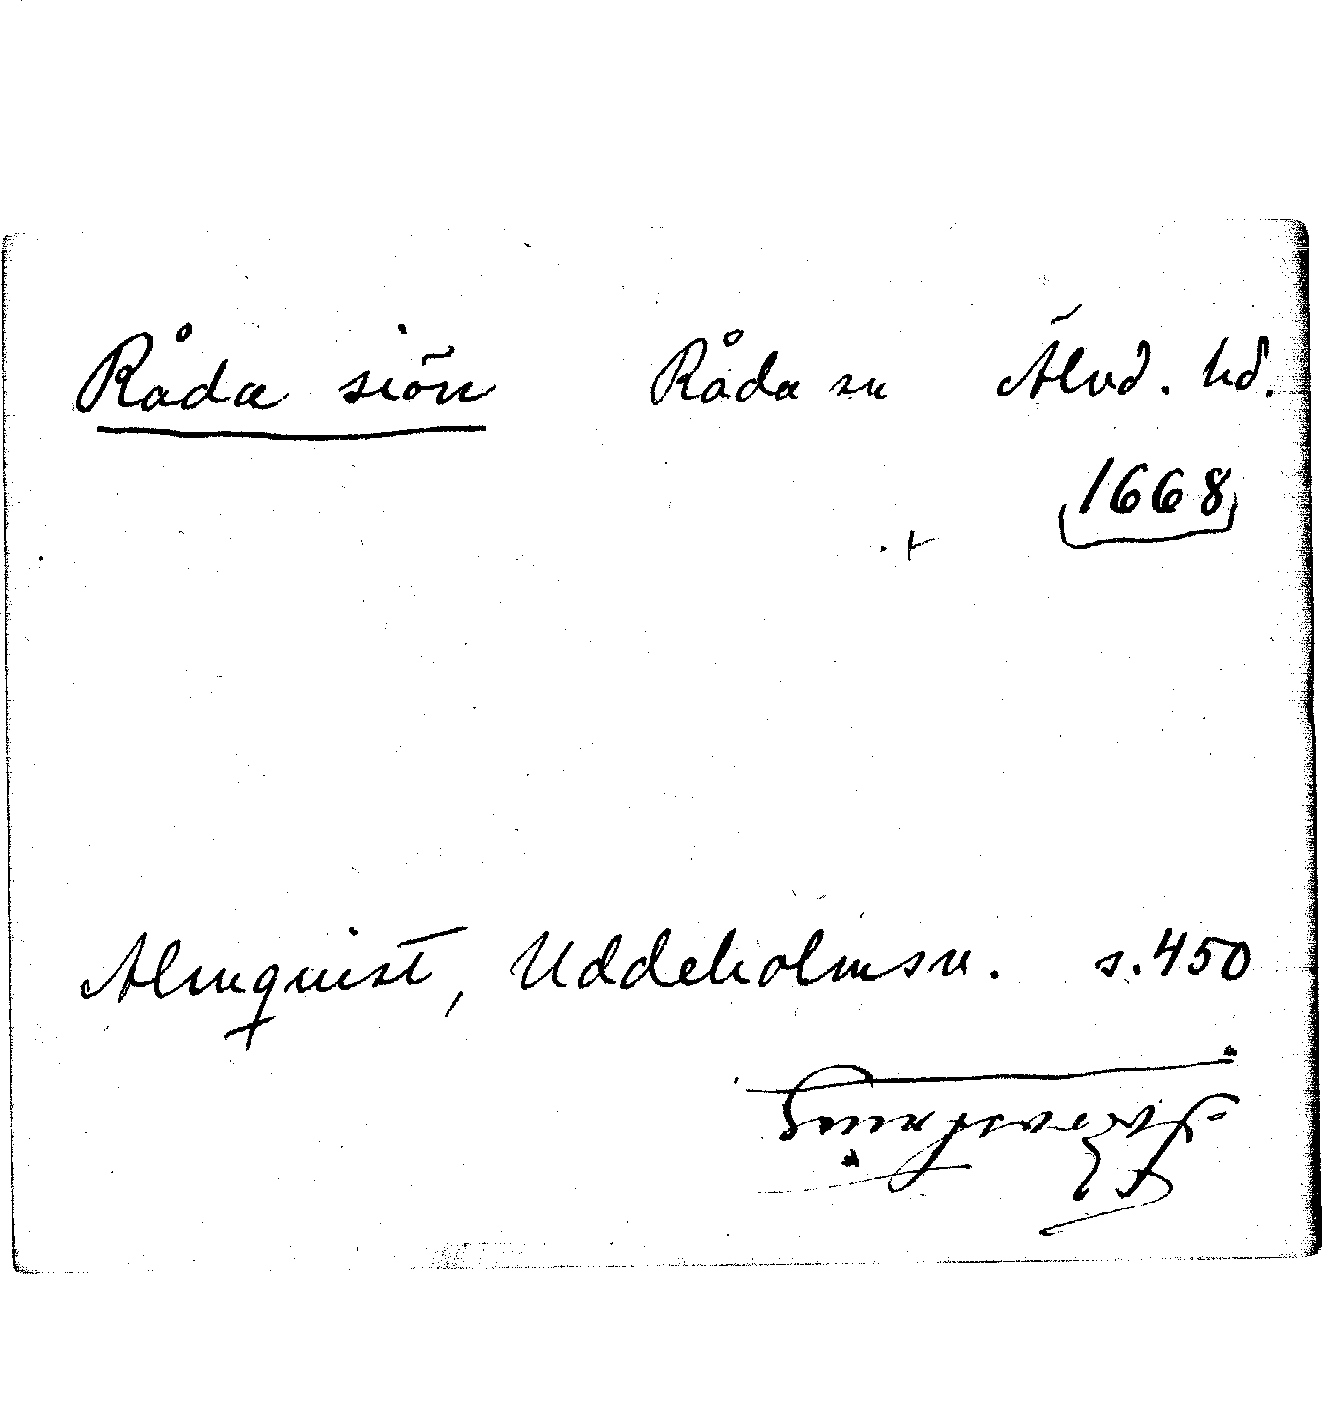 Råda siön Råda sn Älvd. hd.
1668
Almquist, Uddeholmsv. s. 450